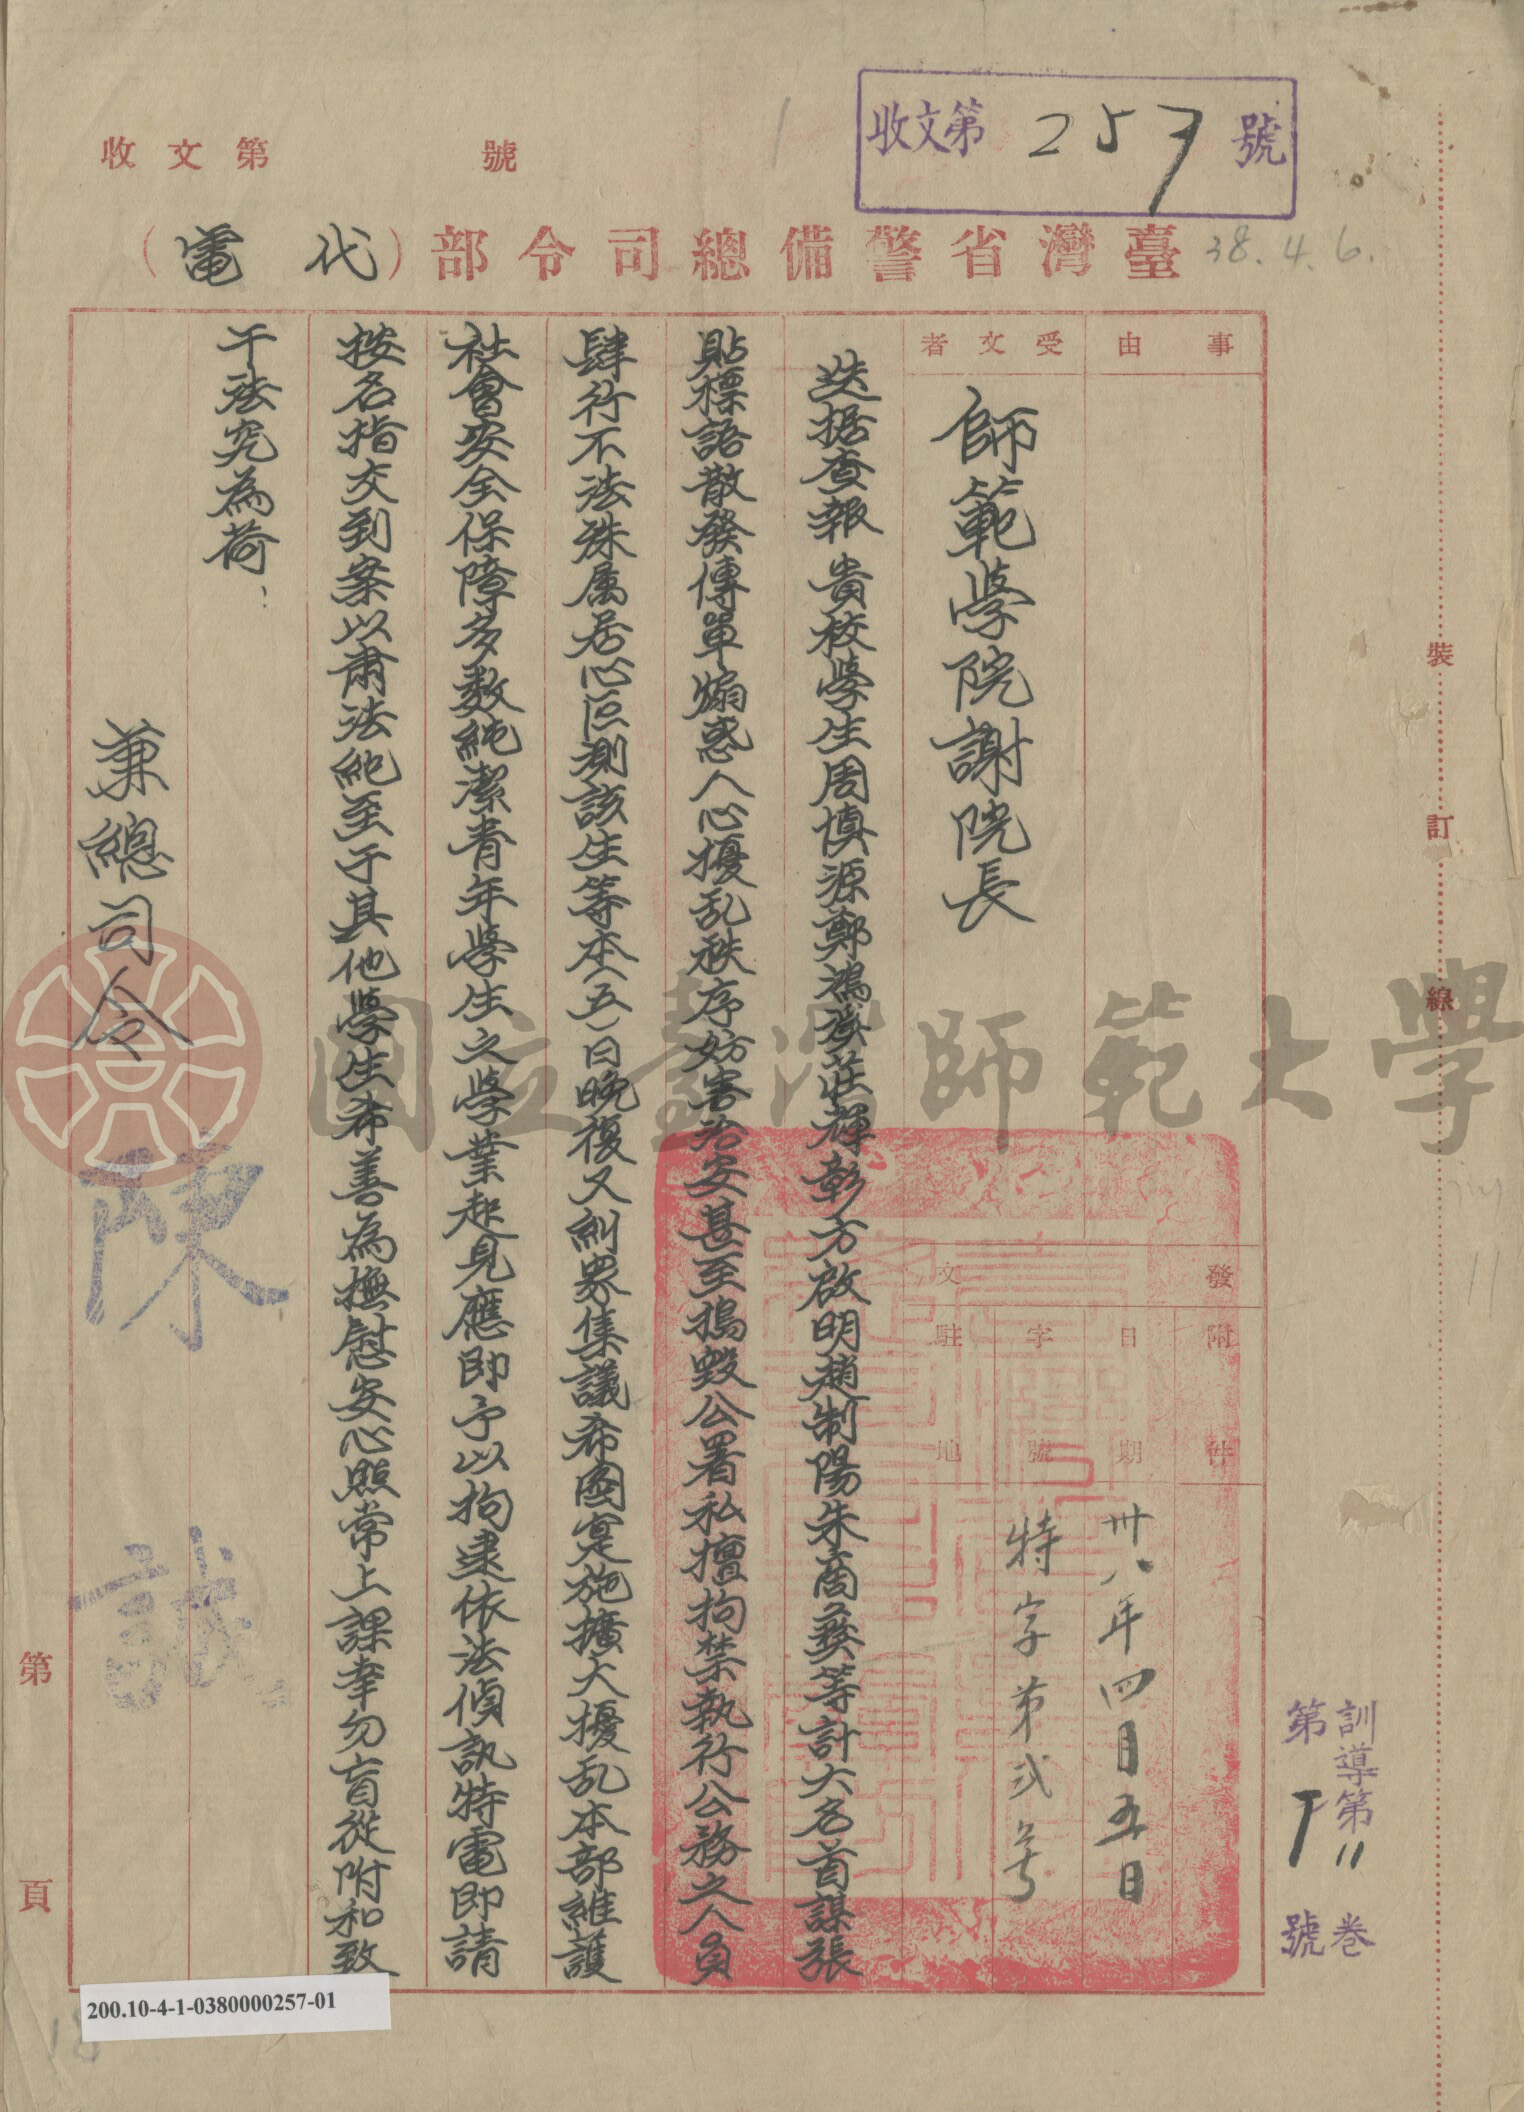 收文第 257 號
收文第 號
臺灣省警備總司令部（代電）
38.4.6.
事由
受文者
師範學院謝院長
發文
附件
日期
卅八年四月五日
字號
特字第弍号
駐地
迭据查報 貴校學生周慎源鄭鴻溪莊輝彰方啟明趙制陽朱商彝等計六名首謀張
貼標語散發傳單煽惑人心擾乱秩序妨害治安甚至搗毀公署私擅拘禁執行公務之人員
肆行不法殊属居心叵測該生等本(五)日晚復又糾眾集議希圖寔施擴大擾乱本部維護
社會安全保障多数純潔青年學生之學業起見應即予以拘逮依法偵訊特電即請
按名指交到案以肅法紀至于其他學生希善為撫慰安心照常上課幸勿盲從附和致
干法究為荷
兼總司令 陳誠
第 頁
裝訂線
訓導第11卷
第 號
國立臺灣師範大學
200.10-4-1-0380000257-01